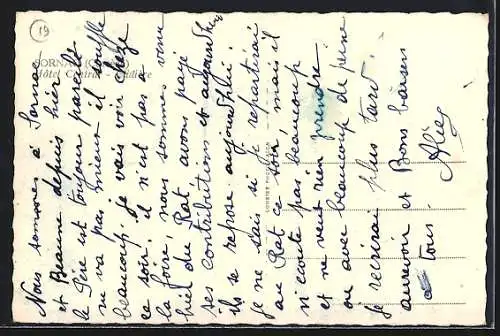 19
SORNAC (Corrèze)
Hôtel Central
Nous sommes à Sornac
et Beaune depuis hier
le Père est toujours pareil
ne va pas mieux il souffle
beaucoup. je vais voir chez
ce soir. il n'est pas à
la foire nous sommes venu
hier du Rat avons payé
ses contributions et aujourd'hui
il se repose aujourd'hui.
je ne sais si je repartirai
au Rat ce soir mais il
n'écoute pas beaucoup
et ne veut rien prendre
ou avec beaucoup de peine
je récrirai plus tard
aurevoir et Bons baisers
à tous